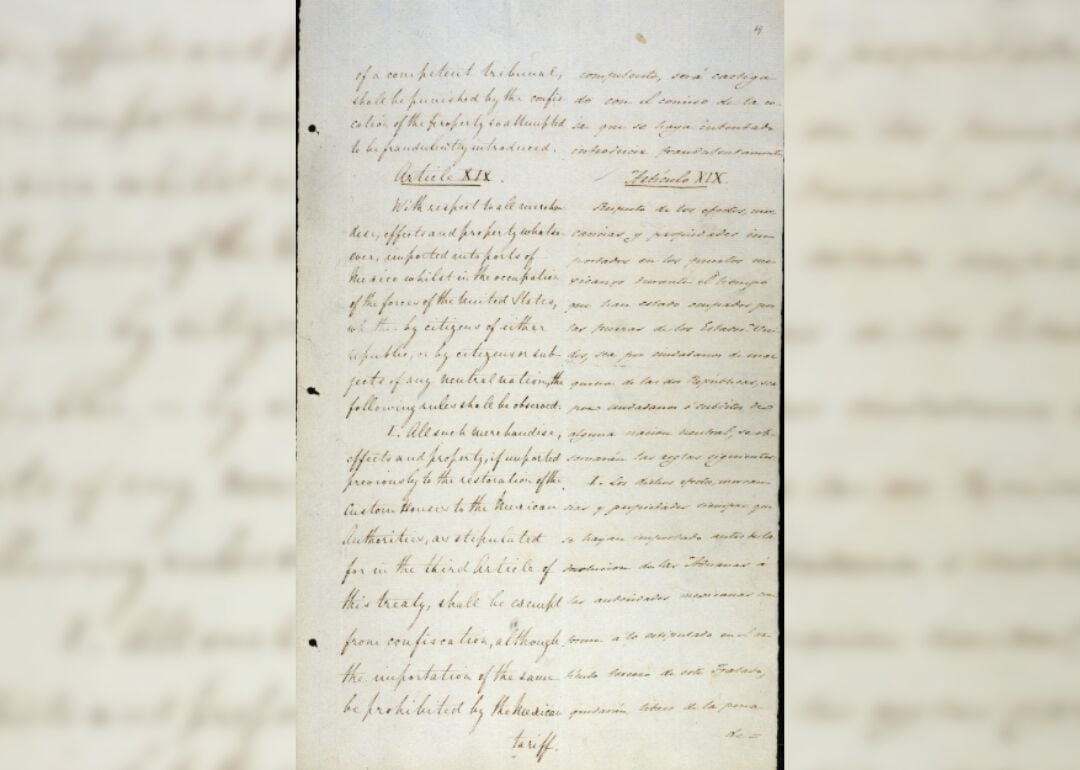 49
of a competent tribunal,
shall be punished by the confis-
cation of the property so attempted
to be fraudulently introduced.
Article XIX.
With respect to all merchan-
dise, effects and property whatso-
ever, imported into ports of
Mexico whilst in the occupation
of the forces of the United States,
whether by citizens of either
republic, or by citizens or sub-
jects of any neutral nation, the
following rules shall be observed:
I. All such merchandise,
effects and property, if imported
previously to the restoration of the
Custom Houses to the Mexican
Authorities, as stipulated
for in the third Article of
this treaty, shall be exempt
from confiscation, although
the importation of the same
be prohibited by the Mexican
tariff.
competente, será castiga-
do con el comiso de la co-
sa que se haya intentado
introducir fraudulentamente.
Artículo XIX.
Respecto de los efectos, mer-
cancias y propiedades im-
portados en los puertos me-
xicanos durante el tiempo
que han estado ocupados por
las fuerzas de los Estados Uni-
dos, sea por ciudadanos de cual-
quiera de las dos Repúblicas, sea
por ciudadanos ó subditos de
alguna nacion neutral, se ob-
servarán las reglas siguientes.
I. Los dichos efectos, mercan-
cias y propiedades siempre que
se hayan importado antes de la
devolucion de las Aduanas á
las autoridades mexicanas con-
forme a lo estipulado en el ar-
tículo tercero de este Tratado,
quedarán libres de la pena
de =